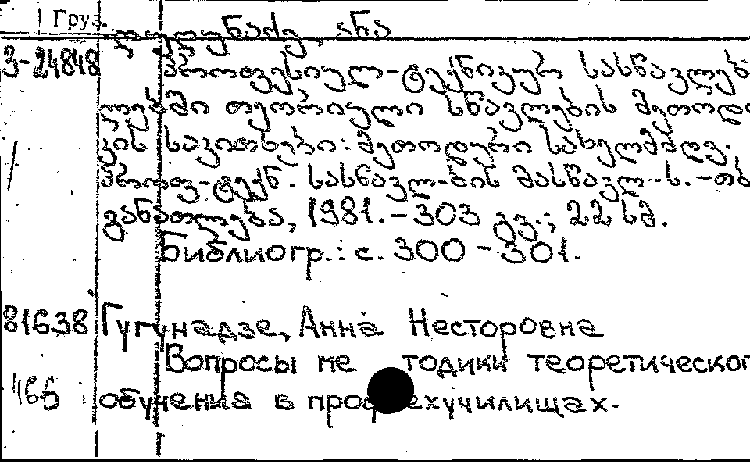 Груз.
გუგუნაძე, ანა
3-24848 პროფესიულ-ტექნიკურ სასწავლებ
ლებში თეორიული სწავლების მეთოდი
კის საკითხები: მეთოდური სახელმძღვ.
პროფ-ტექნ. სასწავლ-ბის მასწავლ-ს.-თბ
განათლება, 1981.-303 გვ.; 22 სმ.
Библиогр.: с. 300-301.
81638 Гугунадзе, Анна Несторовна
Вопросы ме тодики теоретическог
обучения в проф ехучилищах.